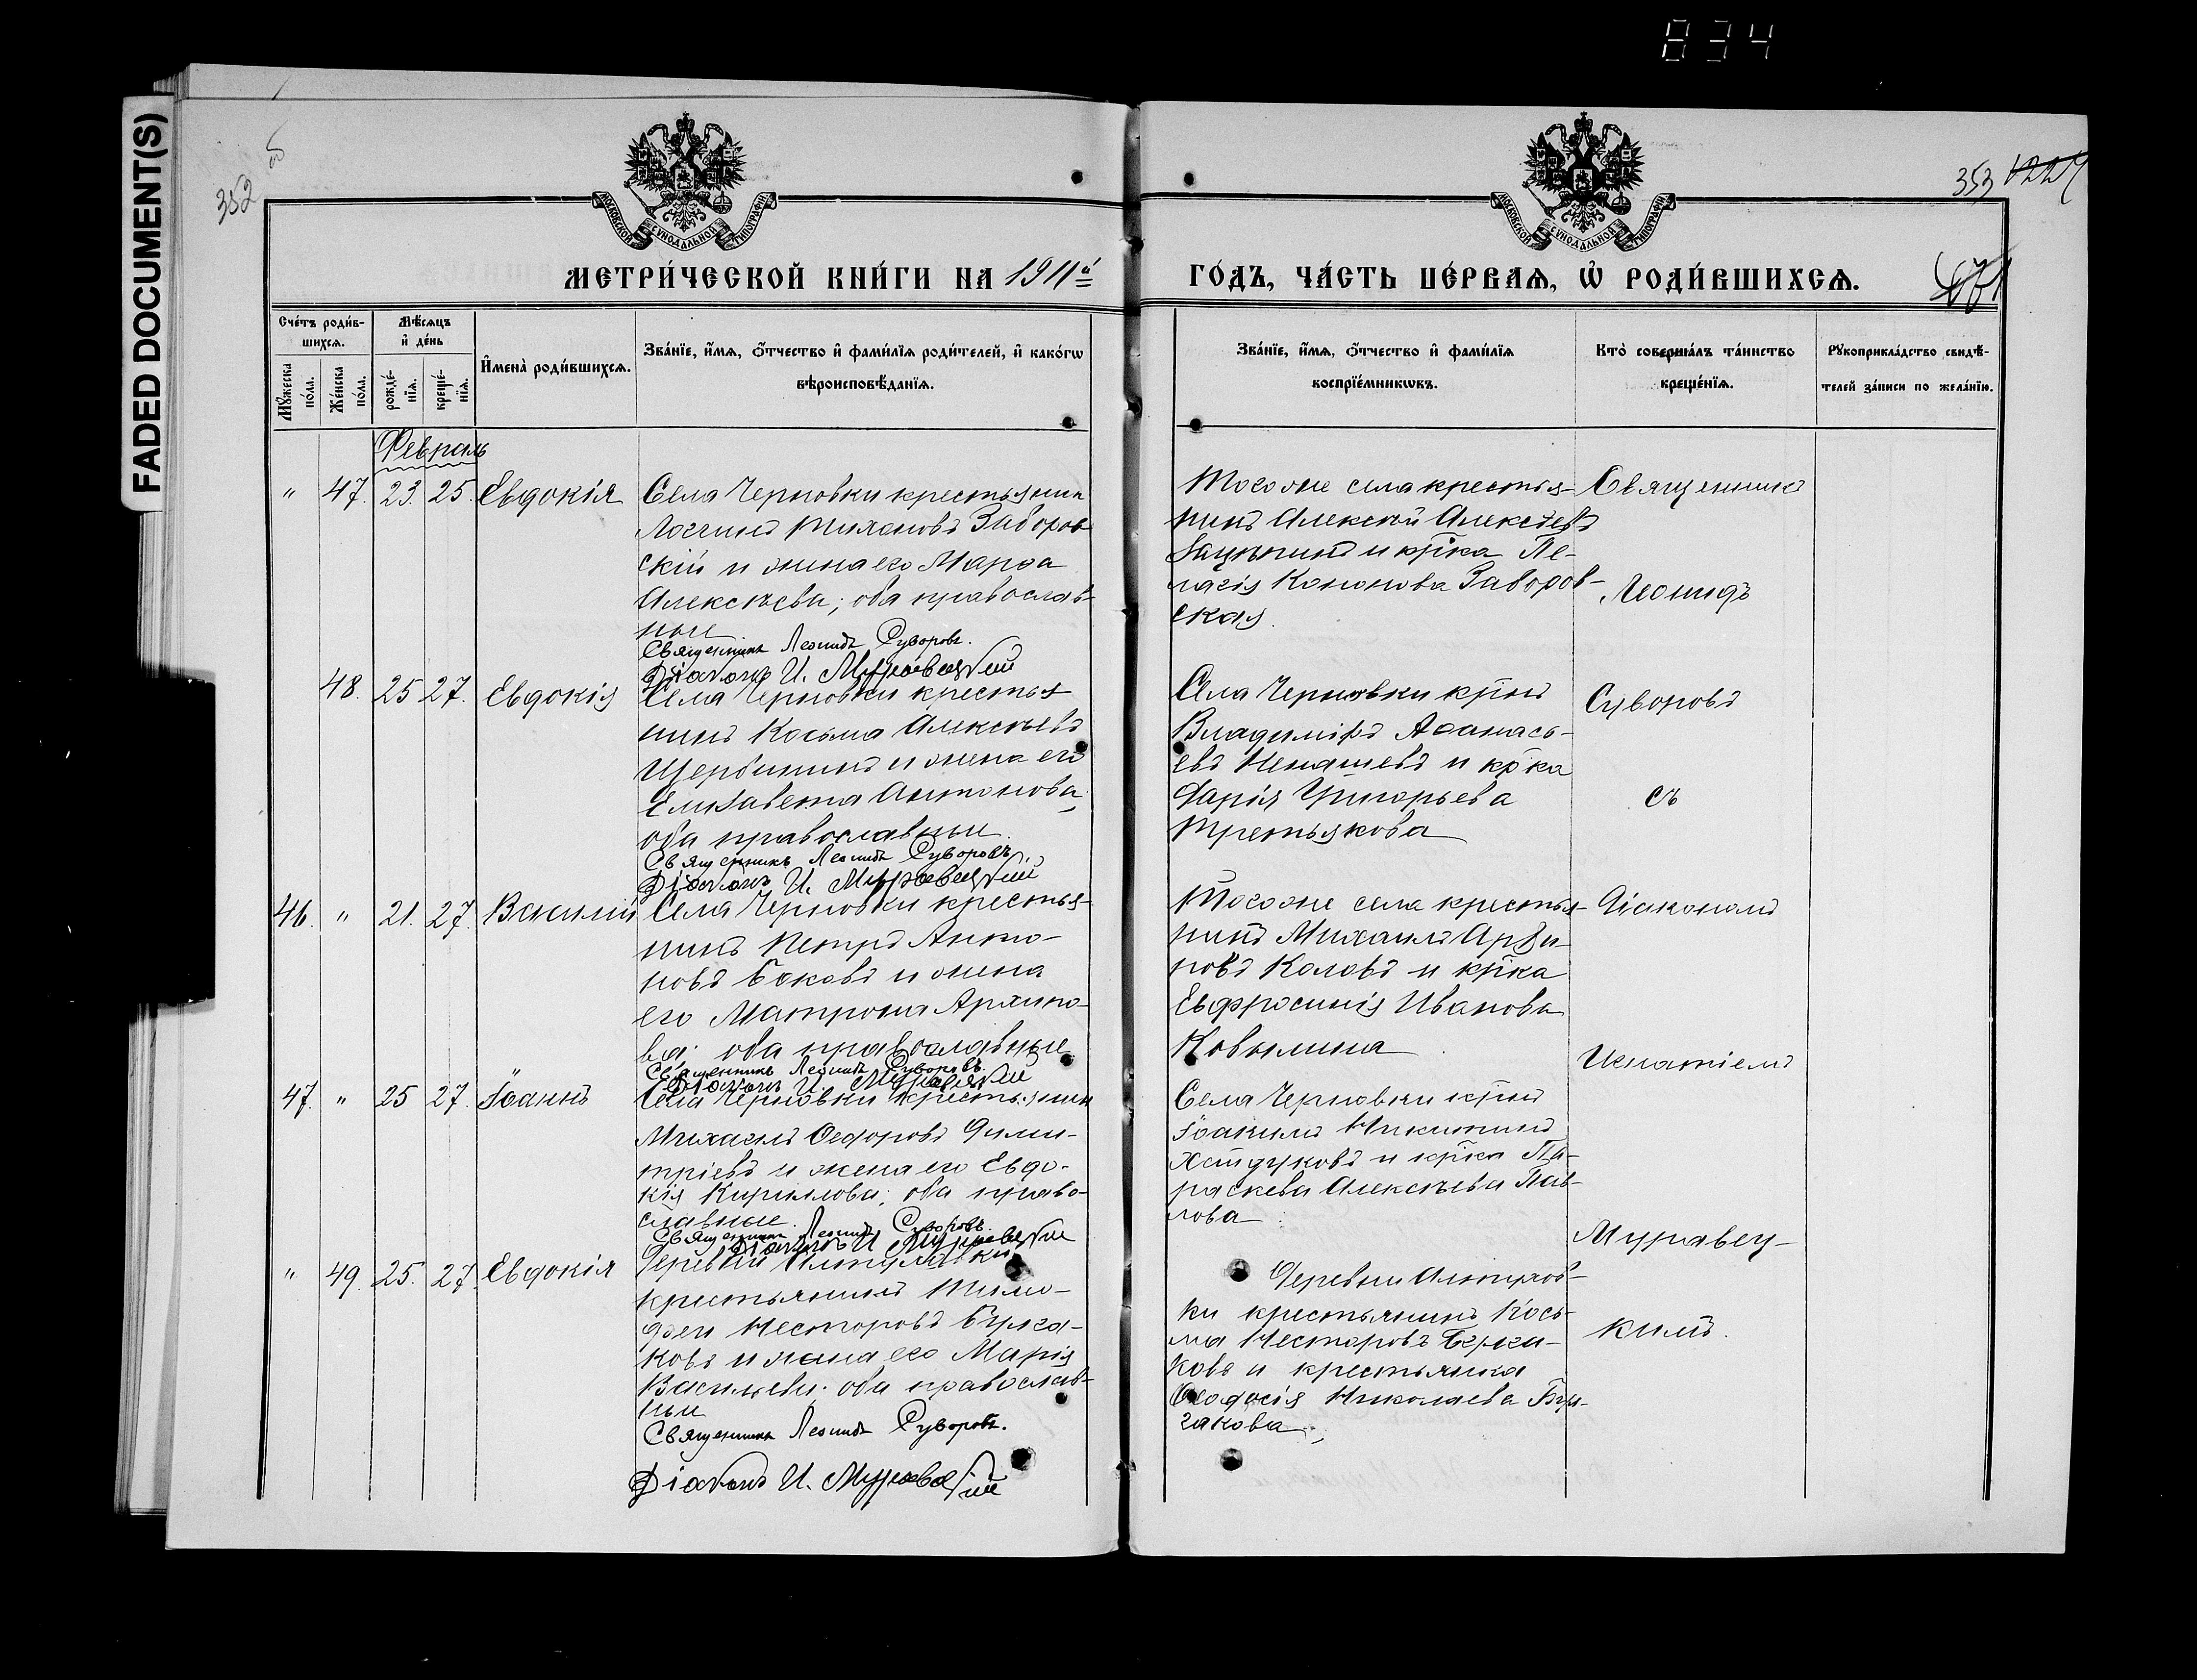 834
FADED DOCUMENT(S)
352
353
МОСКОВСКОЙ СѴНОДАЛЬНОЙ ТИПОГРАФІИ
МОСКОВСКОЙ СѴНОДАЛЬНОЙ ТИПОГРАФІИ
МЕТРИ́ЧЕСКОЙ КНИ́ГИ НА 1911й
ГО́ДЪ, ЧА́СТЬ ПЕ́РВАѦ, Ѡ҆ РОДИ́ВШИХСѦ.
Сче́тъ роди́в-
шихсѧ.
Мꙋ́жеска
по́ла.
Же́нска
по́ла.
Мѣ́сѧцъ
и҆ де́нь
рожде́-
нїѧ.
креще́-
нїѧ.
И҆мена̀ роди́вшихсѧ.
Зва́нїе, и҆́мѧ, ѻ҆́тчество и҆ фами́лїѧ роди́телей, и҆ како́гѡ
вѣроисповѣ́данїѧ.
Зва́нїе, и҆́мѧ, ѻ҆́тчество и҆ фами́лїѧ
воспрїе́мникѡвъ.
Кто̀ соверша́лъ та́инство
креще́нїѧ.
Рꙋкоприкла́дство свидѣ́-
телей за́писи по жела́нїю.
Февраль
" 47. 23. 25. Евдокія
Села Черновки крестьянин
Логгинъ Тихоновъ Заборов
скій и жена его Марѳа
Алексѣева; оба православ-
ные
Священникъ Леонидъ Суворовъ.
Діаконъ И. Муравецкій
Того же села крестья-
нинъ Алексѣй Алексѣевъ
и кр-ка Пе-
лагія Кононова Заборов-
ская.
Священник
Леонидъ
48. 25 27. Евдокія
Села Черновки крестья
нинъ Косьма Алексѣевъ
Щербининъ и жена его
Елизавета Антонова;
оба православные.
Священникъ Леонидъ Суворовъ.
Діаконъ И. Муравецкій
Села Черновки кр-нъ
Владиміръ Аѳанась-
евъ Ненашевъ и кр-ка
Дарія Григорьева
Третьякова
Суворовъ
съ
46. " 21. 27. Василій
Села Черновки крестья-
нинъ Петръ Анто-
новъ Боковъ и жена
его Матрона Архипо-
ва; оба православные
Священникъ Леонидъ Суворовъ.
Діаконъ И. Муравецкій
Того же села крестья-
нинъ Михаилъ
Коловъ и кр-ка
Евфросинія Иванова
Ковылина
Діакономъ
Игнатіемъ
47. " 25 27. Іоаннъ
Села Черновки крестьянин
Михаилъ Ѳедоровъ Дими-
тріевъ и жена его Евдо-
кія Кириллова; оба право-
славные.
Священникъ Леонидъ Суворовъ.
Діаконъ И Муравецкій
Села Черновки кр-нъ
Іоакимъ Никитинъ
и кр-ка Па-
раскева Алексѣева Пав-
лова
Муравец-
" 49. 25. 27. Евдокія
Деревни
крестьянинъ Тимо-
ѳей Несторовъ Булга-
ковъ и жена его Марія
Васильева; оба православ-
ные
Священникъ Леонидъ Суворовъ.
Діаконъ И. Муравецкій
Деревни
ки крестьянинъ Кось-
ма Несторовъ
ковъ и крестьянка
Ѳеодосія Николаева Бул-
гакова
кимъ.